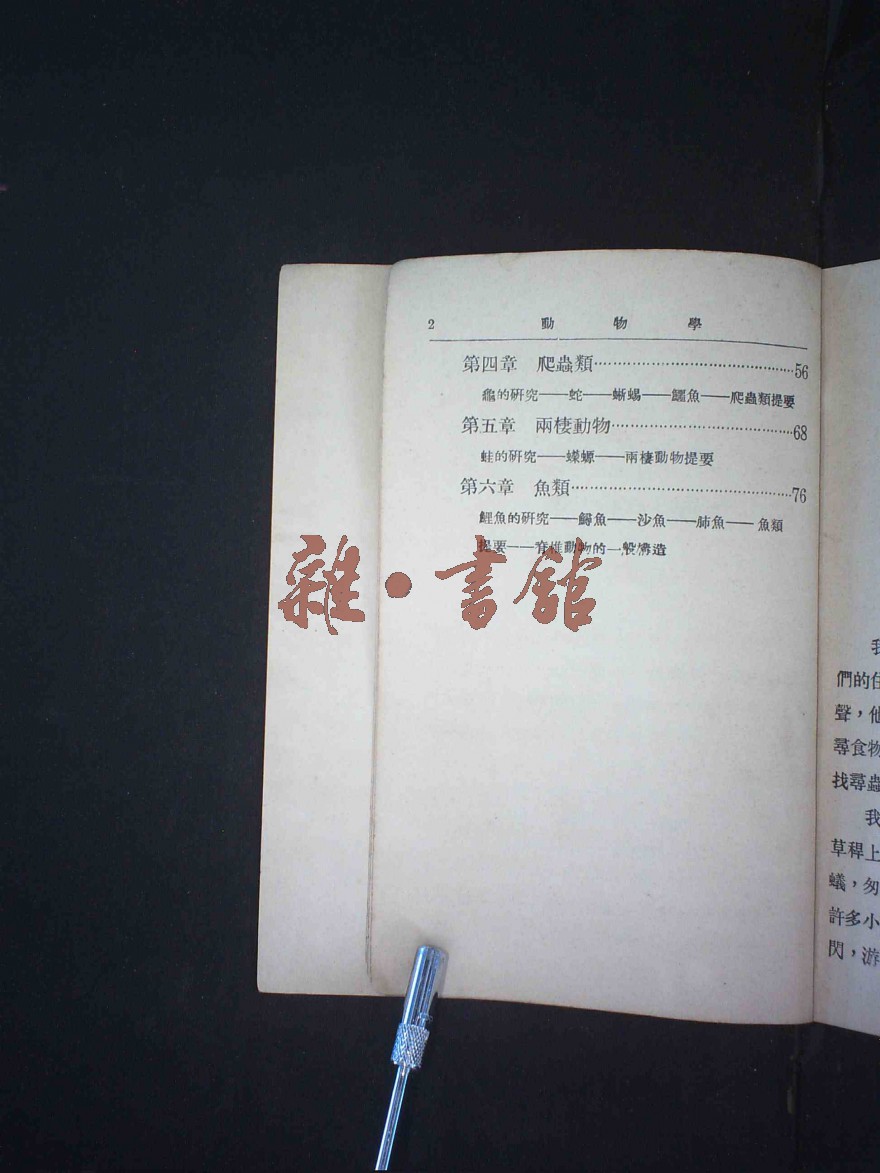 2 動物學
第四章 爬蟲類……………………………………56
龜的研究——蛇——蜥蜴——鱷魚——爬蟲類提要
第五章 兩棲動物…………………………………68
蛙的研究——蠑螈——兩棲動物提要
第六章 魚類………………………………………76
鯉魚的研究——鱘魚——沙魚——肺魚——魚類
提要——脊椎動物的一般構造
雜·書館
我
們的住
聲，他
尋食物
找尋蟲
我
草稈上
蟻，匆
許多小
閃，游